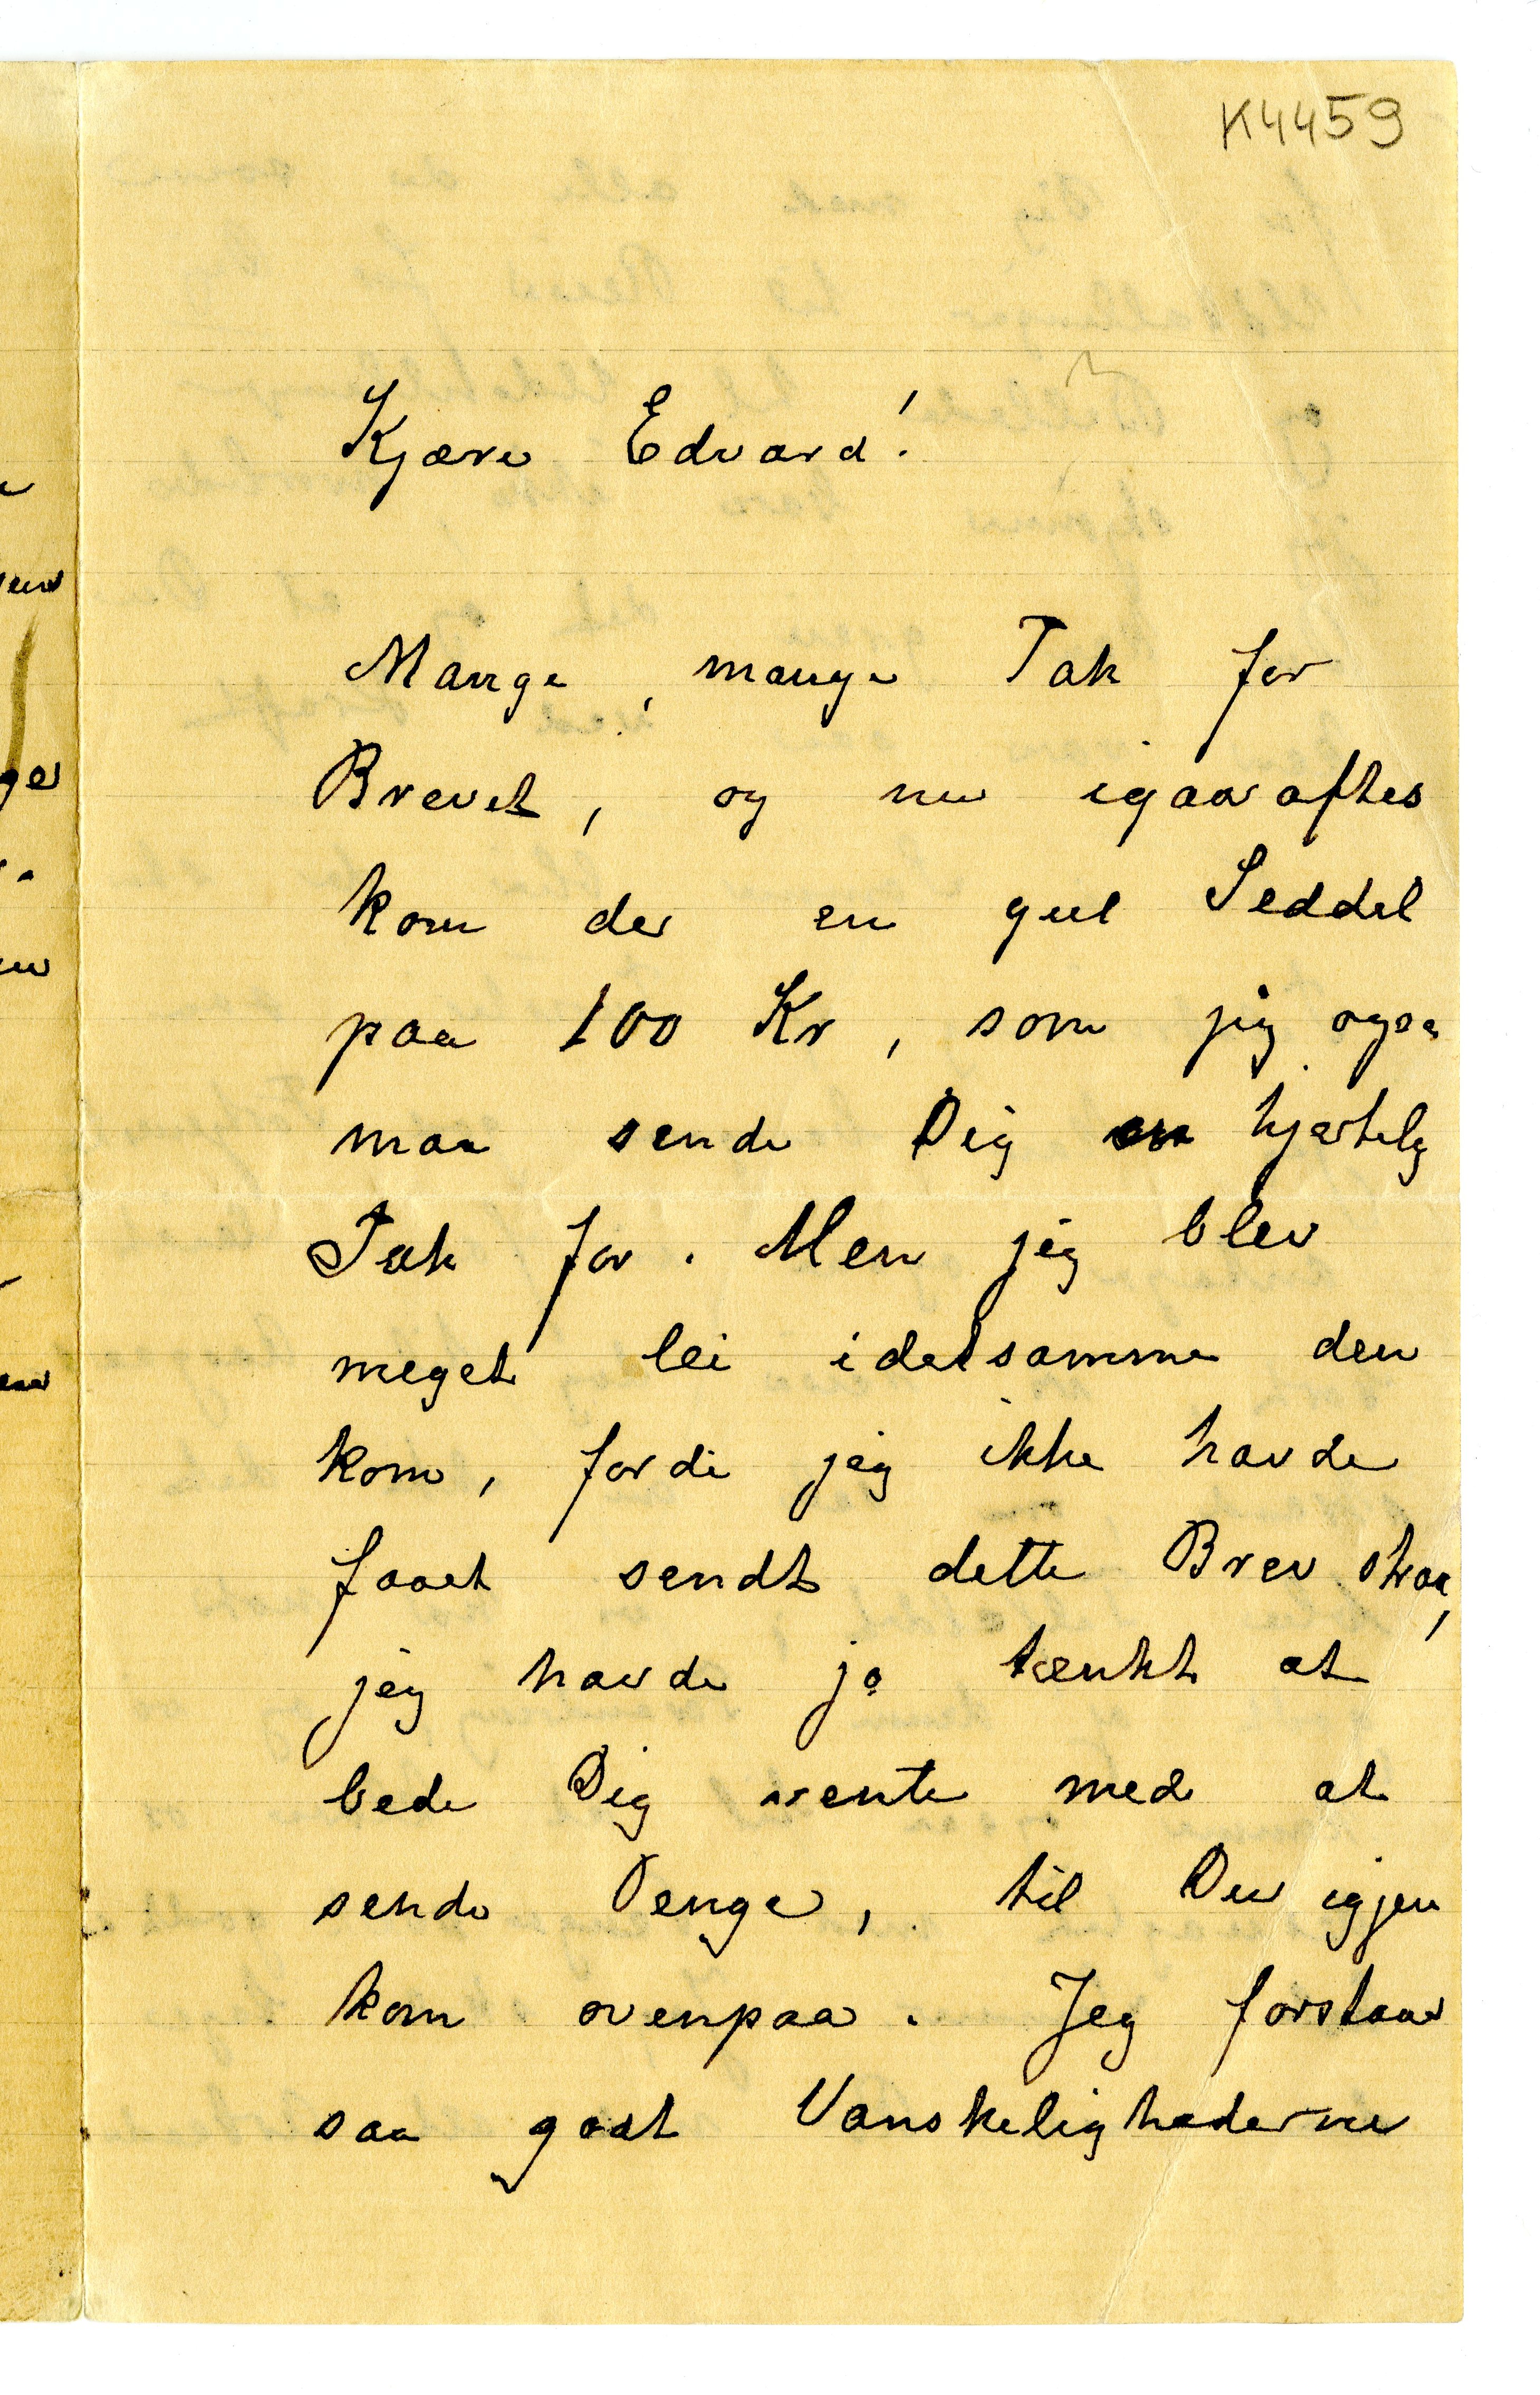 K4459
Kjære Edvard!
Mange, mange Tak for
Brevet, og nu igaaraftes
kom der en gul Seddel
paa 100 Kr, som jeg ogsa
maa sende Dig en hjertelig
Tak for. Men jeg blev
meget lei idetsamme den
kom, fordi jeg ikke havde
faaet sendt dette Brev straa,
jeg havde jo tænkt at
bede Dig vente med at
sende Penge, til Du igjen
kom ovenpaa. Jeg forstaar
saa godt Vanskelighederne